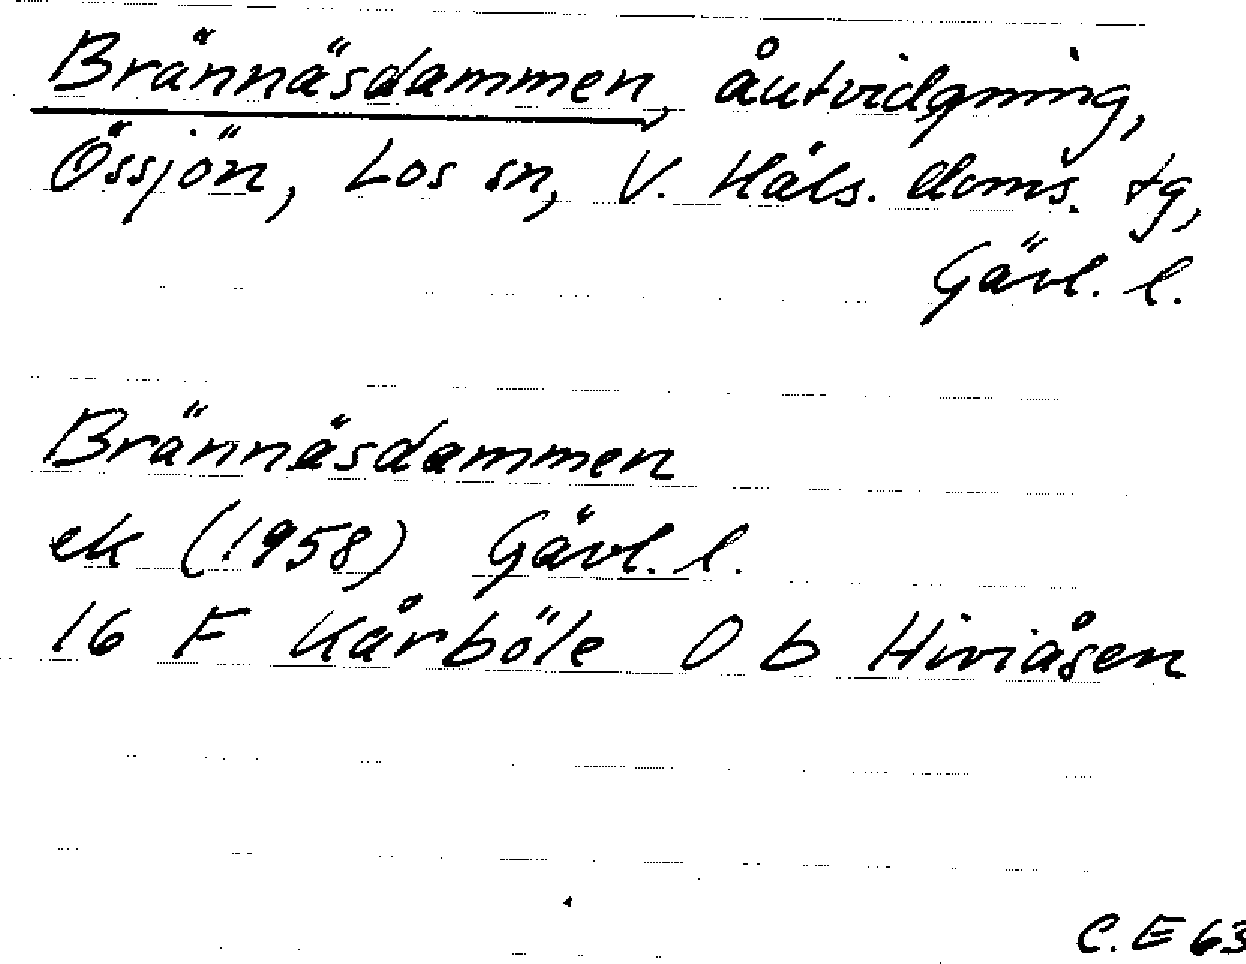 Brännäsdammen, åutvidgning,
Össjön, Los sn, V. Häls. doms. tg,
Gävl. l.
Brännäsdammen
ek (1958) Gävl. l.
16 F Kårböle O b Hiviåsen
C. E 63